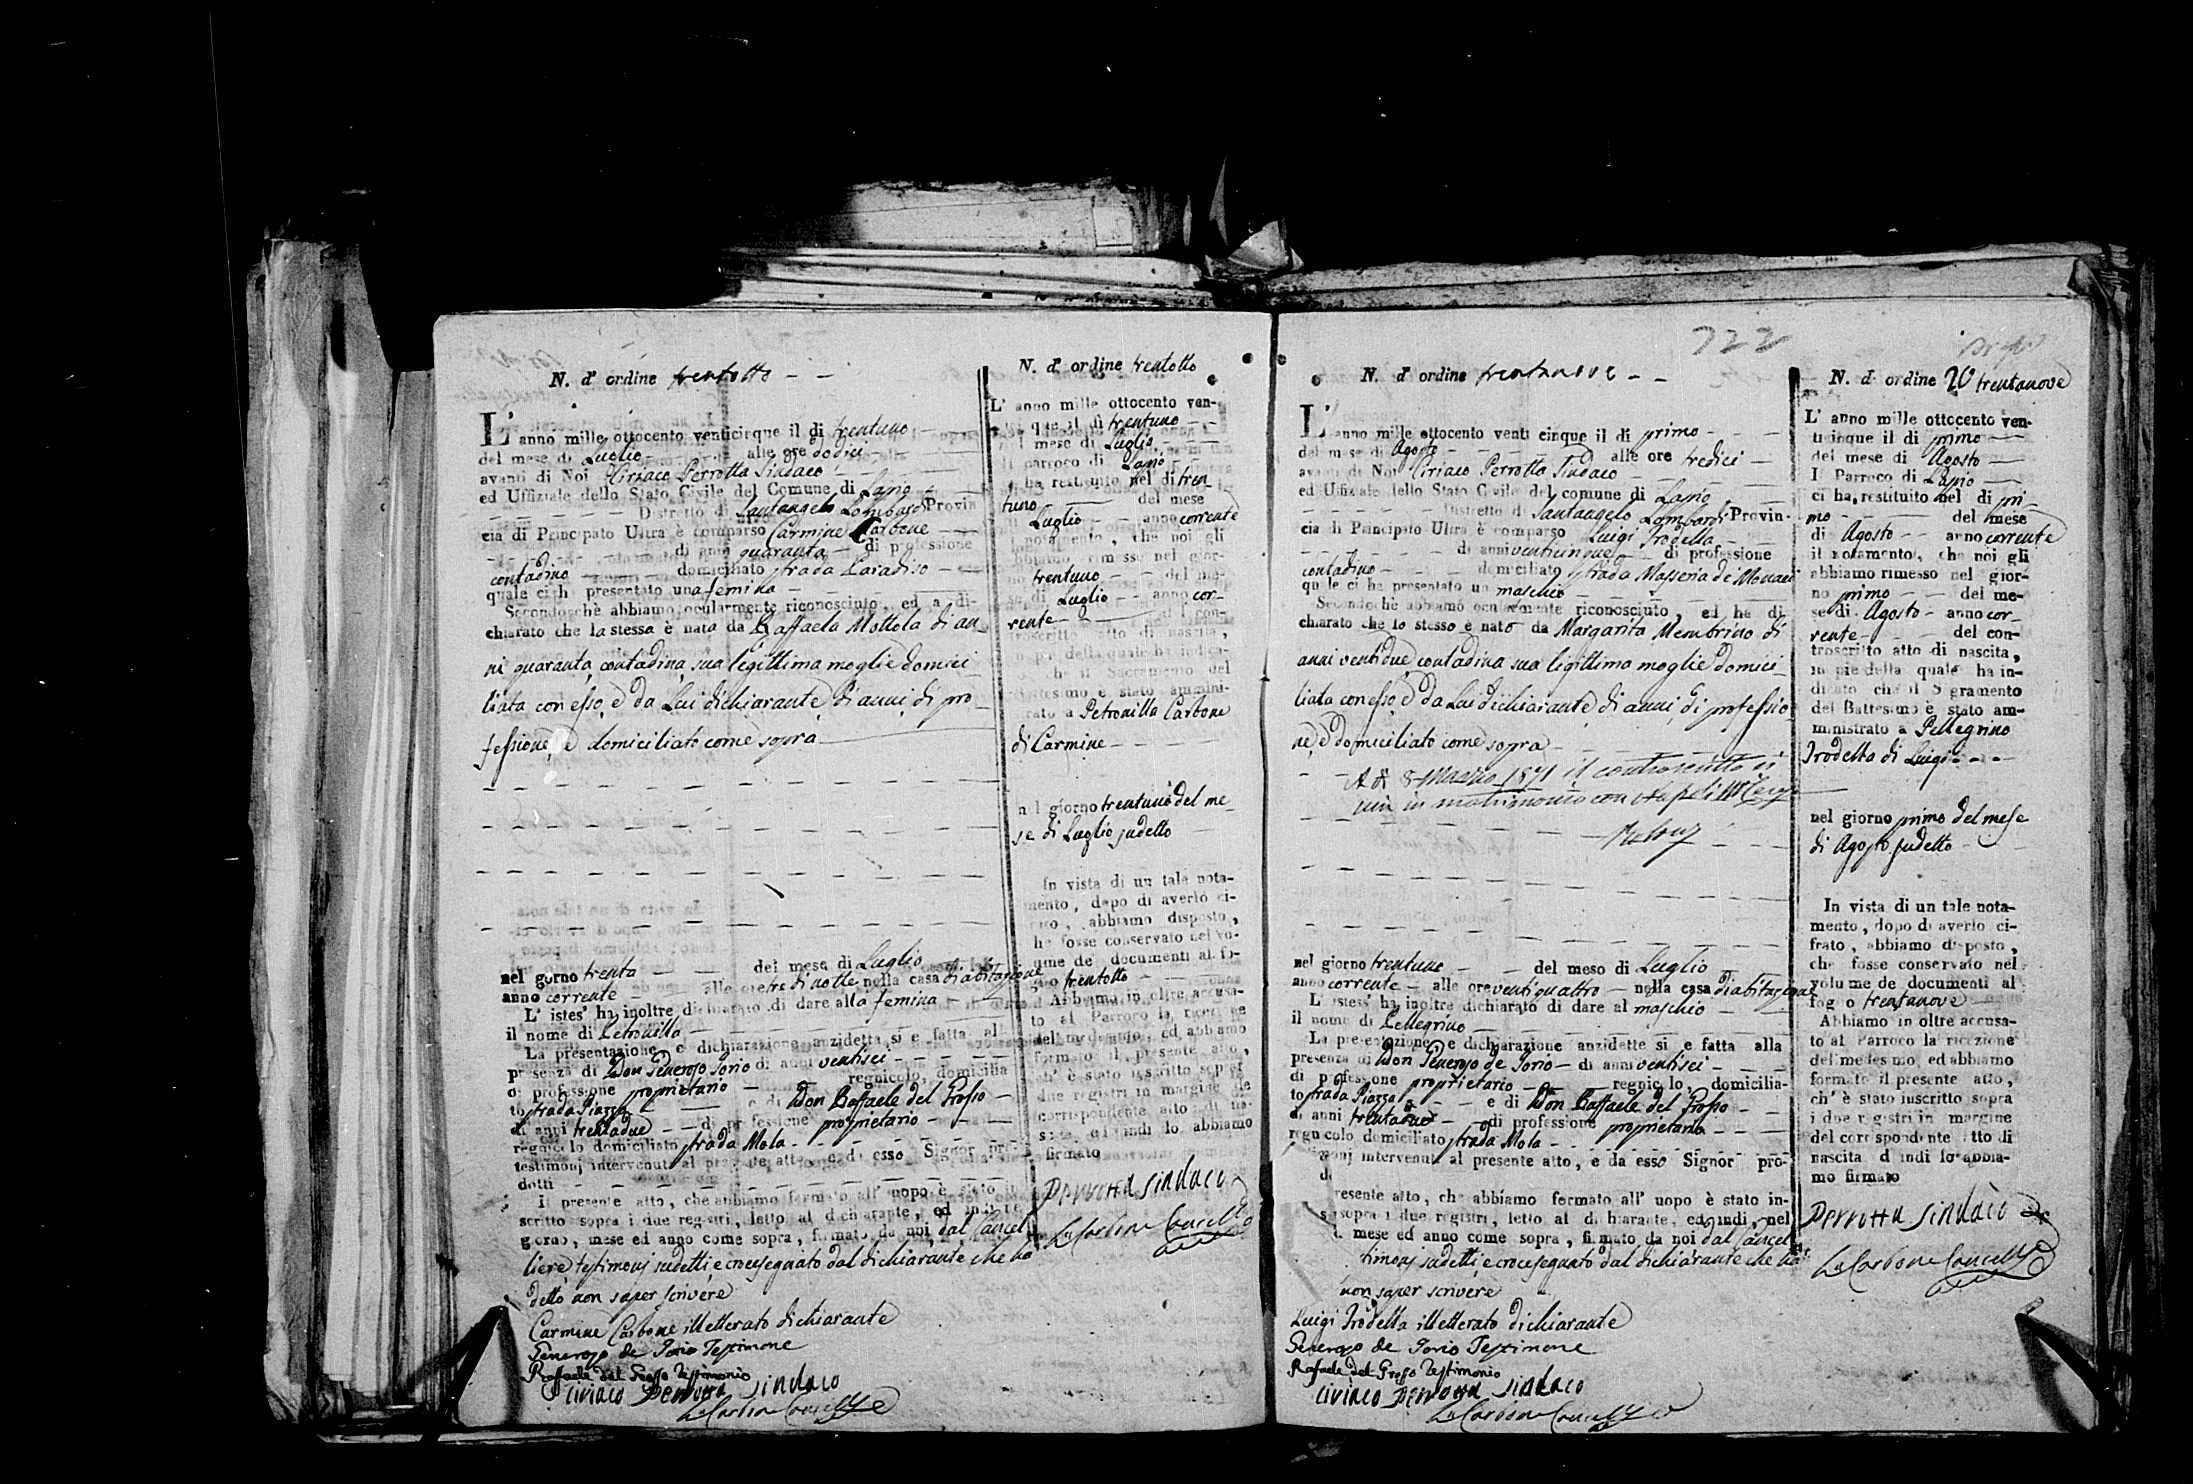 N. d' ordine trentotto
L' anno mille ottocento venticinque il di trentuno
del mese di Luglio alle ore dodici
avanti di Noi Ciriaco Perrotta Sindaco
ed Uffiziale dello Stato Civile del Comune di Lapio
Distretto di Santangelo Lombardi Provin
cia di Principato Ultra è comparso Carmine Carbone
di anni quaranta di professione
contadino domiciliato strada Paradiso
quale ci h presentato una femina
Secondochè abbiamo ocularmente riconosciuto, ed a di-
chiarato che la stessa è nata da Raffaela Mottola di an-
ni quaranta contadina sua legittima moglie domici
liata con esso, e da Lui dichiarante di anni, di pro-
fessione, e domiciliato come sopra
nel gorno trenta del mese di Luglio
anno corrente alle ore tre di notte nella casa di abitazione
L' istes' ha inoltre dichiarato di dare alla femina
il nome di Petronilla
La presentazione, e dichiarazione anzidetta si e fatta all
presenza di Don Generoso Iorio di anni ventisei
di professione proprietario regnicolo, domicilia
to strada Piazza e di Don Raffaele del Grosso
di anni trentadue di professione proprietario
regnicolo domiciliato strada Mola
testimonj intervenuti al presente atto, e da esso Signor pro-
dotti
Il presente atto, che abbiamo formato all' uopo è stato in
scritto sopra i due registri, letto al dichiarante, ed indi
giorno, mese ed anno come sopra, firmato da noi, dal Cancel
liere testimonj sudetti, e crocesegnato dal dichiarante che ha
detto non saper scrivere
Carmine Carbone illetterato dichiarante
Generoso de Iorio Testimone
Raffaele del Grosso Testimonio
Ciriaco Perrotta Sindaco
N. d' ordine trentotto
L' anno mille ottocento ven-
que il di trentuno
mese di Luglio
parroco di Lapio
ha restituito nel di tren
tuno del mese
Luglio anno corrente
notamento, che noi gli
abbiamo rimesso nel gior-
trentuno del me-
di Luglio anno cor-
rente del con-
troscritto atto di nascita,
piè della quale ha indica-
che il Sacramento del
Battesimo è stato ammini-
rato a Petronilla Carbone
di Carmine
nel giorno trentuno del me-
se di Luglio sudetto
In vista di un tale nota-
mento, dopo di averlo ci-
abbiamo disposto,
he fosse conservato nel vo-
ume de' documenti al fo-
trentotto
Abbiamo in oltre accusa-
to al Parroco la ricezione
del medesimo, ed abbiamo
formato il presente atto,
ch' è stato iscritto sopra
due registri in margine de
corrispondente atto di na-
quindi lo abbiamo
firmato
Perrotta Sindaco
722
N. d' ordine trentanove
L' anno mille ottocento venti cinque il di primo
del mese di Agosto alle ore tredici
avanti di Noi Ciriaco Perrotta Sindaco
ed Ufiziale dello Stato Civile del comune di Lapio
Distretto di Santangelo Lombardi Provin-
cia di Principato Ultra è comparso Luigi Trodella
di anni venticinque di professione
contadino domiciliato strada Masseria de Monaci
quale ci ha presentato un maschio
Secondo chè abbiamo ocularmente riconosciuto, ed ha di
chiarato che lo stesso è nato da Margarita Membrino di
anni ventidue, contadina sua legittima moglie domici
liata con esso, e da Lui dichiarante di anni, di professio-
ne, e domiciliato come sopra
1871 il controscritto si
unì in matrimonio con
nel giorno trentuno del meso di Luglio
anno corrente alle ore ventiquattro nella casa di abitazione
L' istess' ha inoltre dichiarato di dare al maschio
il nome di Pellegrino
La presentazione, e dichiarazione anzidette si e fatta alla
presenza di Don Generoso de Iorio di anni ventisei
di professione proprietario regnicolo, domicilia-
to strada Piazza e di Don Raffaele del Grosso
di anni trentadue di professione proprietario
regnicolo domiciliato strada Mola
intervenuti al presente atto, e da esso Signor pro-
resente atto, che abbiamo formato all' uopo è stato in-
sopra i due registri, letto al dichiarante, ed indi, nel
mese ed anno come sopra, firmato da noi dal Cancel
timonj sudetti, e crocesegnato dal dichiarante che ha
non saper scrivere
Luigi Trodella illetterato dichiarante
Generoso de Iorio Testimone
Rafaele del Grosso Testimonio
Ciriaco Perrotta Sindaco
N. d' ordine trentanove
L' anno mille ottocento ven-
ticinque il di primo
del mese di Agosto
I Parroco di Lapio
ci ha restituito nel di pri-
mo del mese
di Agosto anno corrente
il notamento, che noi gli
abbiamo rimesso nel gior-
no primo del me-
se di Agosto anno cor-
rente del con-
troscritto atto di nascita,
in piè della quale ha in-
dicato che il Sagramento
del Battesimo è stato am-
ministrato a Pellegrino
Trodella di Luigi
nel giorno primo del mese
di Agosto sudetto
In vista di un tale nota-
mento, dopo di averlo ci-
frato, abbiamo disposto,
che fosse conservato nel
volume de documenti al
fog o trentanove
Abbiamo in oltre accusa-
to al Parroco la ricezione
del medesimo, ed abbiamo
formato il presente atto,
ch' è stato iuscritto sopra
i due registri in margine
del corrispondente atto di
nascita d indi lo abbia-
mo firmato
Perrotta Sindaco